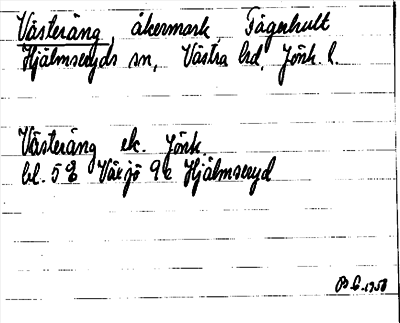 Västeräng, åkermark, Fagerhult
Hjälmseryds sn, Västra hd, Jönk. l.
Västeräng ek. Jönk.
bl. 58 Växjö 9e Hjälmseryd
1958